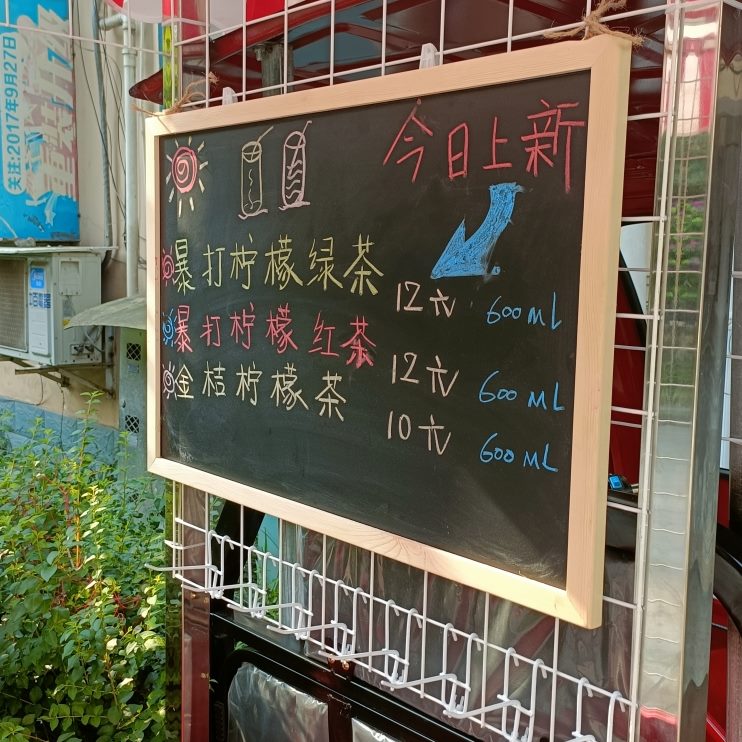 今日上新
暴打柠檬绿茶 12元 600ML
暴打柠檬红茶 12元 600ML
金桔柠檬茶 10元 600ML
关注:2017年9月27日